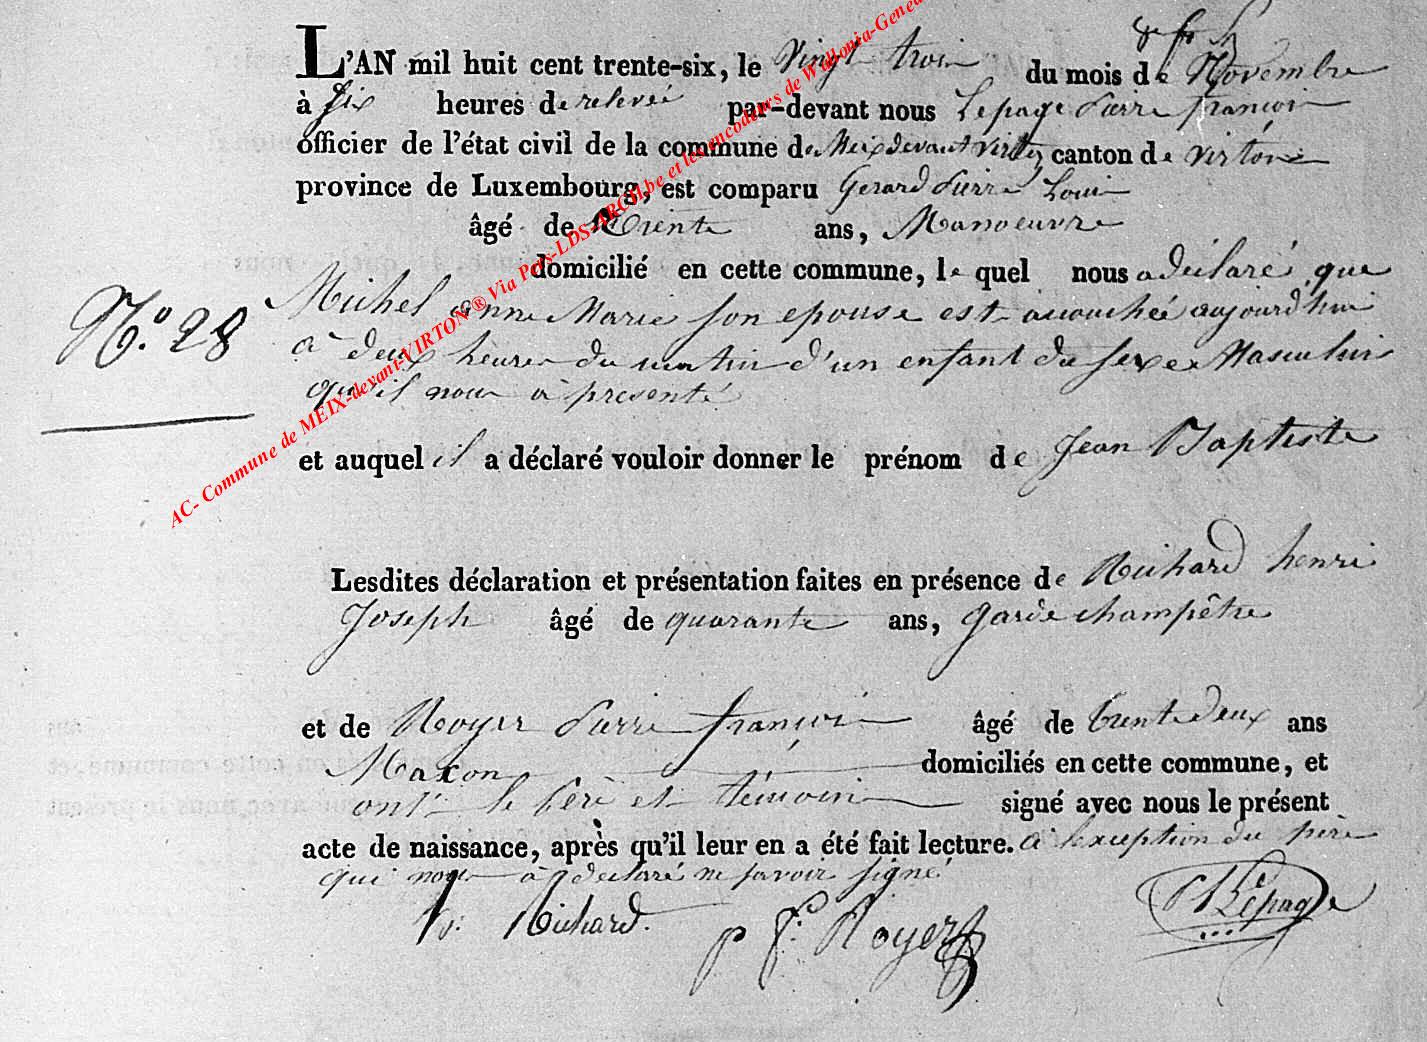 L'AN mil huit cent trente-six, le Vingt trois du mois de Novembre
à Six heures de relevée par-devant nous Lepage Pierre françois
officier de l'état civil de la commune de Meix devant Virton canton de Virton
province de Luxembourg, est comparu Gerard Pierre Louis
âgé de trente ans, Manoeuvre
domicilié en cette commune, le quel nous a déclaré que
N.º 28
Michel anne Marie son epouse est accouchée aujourd'hui
à deux heures du matin d'un enfant du sexe Masculin
qu'il nous à presenté
et auquel il a déclaré vouloir donner le prénom de Jean Baptiste
Lesdites déclaration et présentation faites en présence de Richard henri
Joseph âgé de quarante ans, garde champêtre
et de Royer Pierre françois âgé de trente deux ans
Maxon domiciliés en cette commune, et
ont le Père et témoins signé avec nous le présent
acte de naissance, après qu'il leur en a été fait lecture. à l'exception du père
qui nous à déclaré ne savoir signé
Richard. p f. Royer Lepage
AC- Commune de MEIX-devant-VIRTON ® Via Pers-LDS-ARCH.be et les encodeurs de Wallonia-Genea